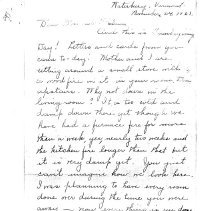 Waterbury, Vermont
November 24, 1927.
Dear
And this is Thanksgiving
Day! Letters and cards from you
came to-day. Mother and I are
sitting around a small stove with
a wood fire in it in your room,
upstairs. Why not down in the
living room? It is too cold and
damp down there yet though we
have had a furnace fire for more
than a week, yes nearly two weeks and
the kitchen fire longer than that but
it is very damp yet. You just
can't imagine how we look here.
I was planning to have every room
done over during the time you were
away — now even there is no